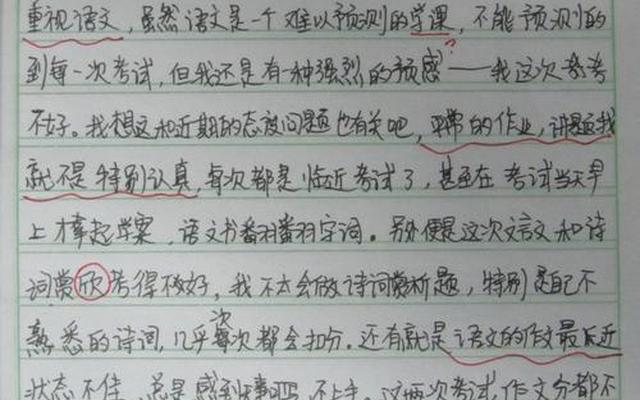 重视语文，虽然语文是一个难以预测的学课，不能预测的
到每一次考试，但我还是有一种强烈的预感——我这次考
不好。我想这和近期的态度问题也有关吧，平常的作业，讲题我
就不是特别认真，每次都是临近考试了，甚至在考试当天早
上才拿起学案，语文书翻翻字词。另外便是这次文言文和诗
词赏欣考得不好，我不太会做诗词赏析题，特别是自己不
熟悉的诗词，几乎每次都会扣分。还有就是语文的作文最后近
状态不佳，总是感到 不上手。这两次考试，作文分都不